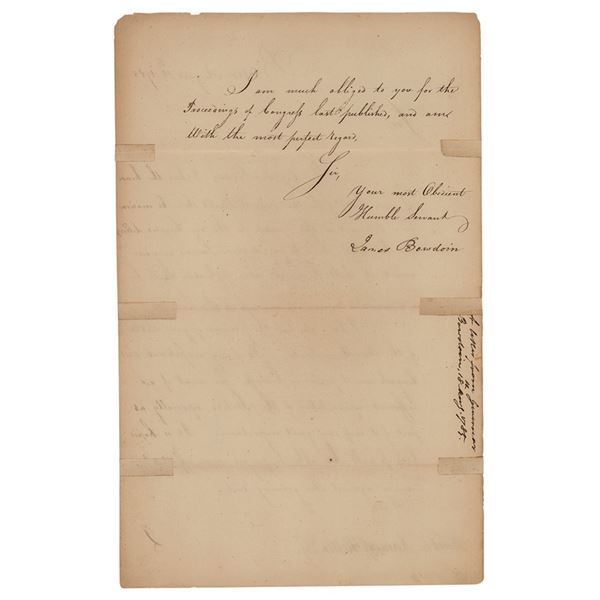 I am much obliged to you for the
Proceedings of Congress last published, and am
With the most perfect regard,
Sir,
Your most Obedient
Humble Servant
James Bowdoin
A letter from Governor
Bowdoin, 1785